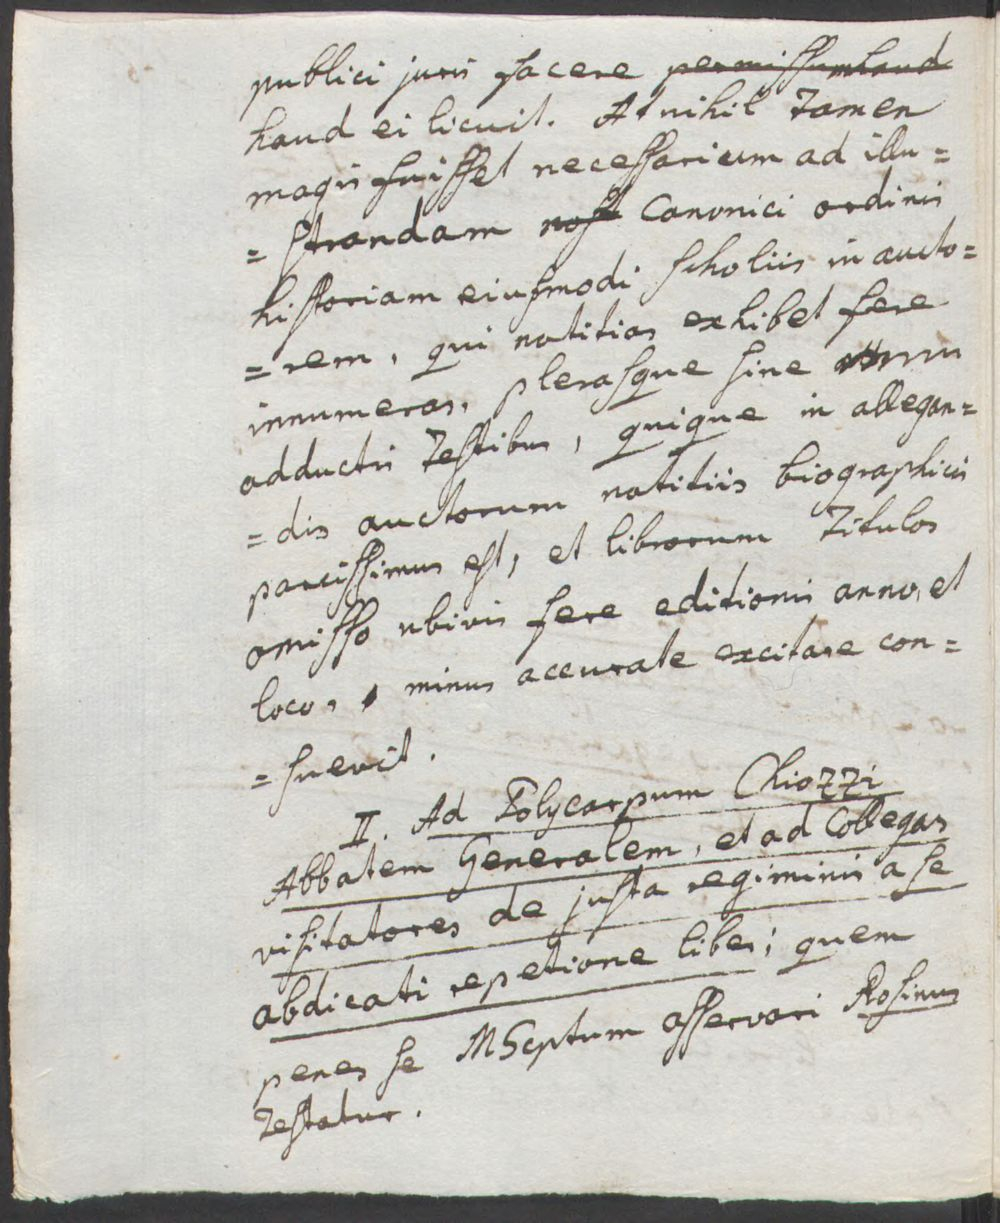 publici juris facere permissum haud
haud ei licuit. At nihil tamen
magis fuisset necessarium ad illu=
=strandam nost Canonici ordinis
historiam eiusmodi scholiis in aucto=
=rem, qui notitias exhibet fere
innumeras, plerasque sine
adductis testibus, quique in allegan=
=dis auctorum notitiis biographicis
parcissimus est, et librorum titulos
omisso ubivis fere editionis anno, et
loco, minus accurate excitare con=
=suevit.
II. Ad Polycarpum Chiozzi
Abbatem Generalem, et ad Collegas
visitatores de justa regiminis a se
abdicati repetione liber; quem
penes se MSCptum asservari Rosinus
testatur.